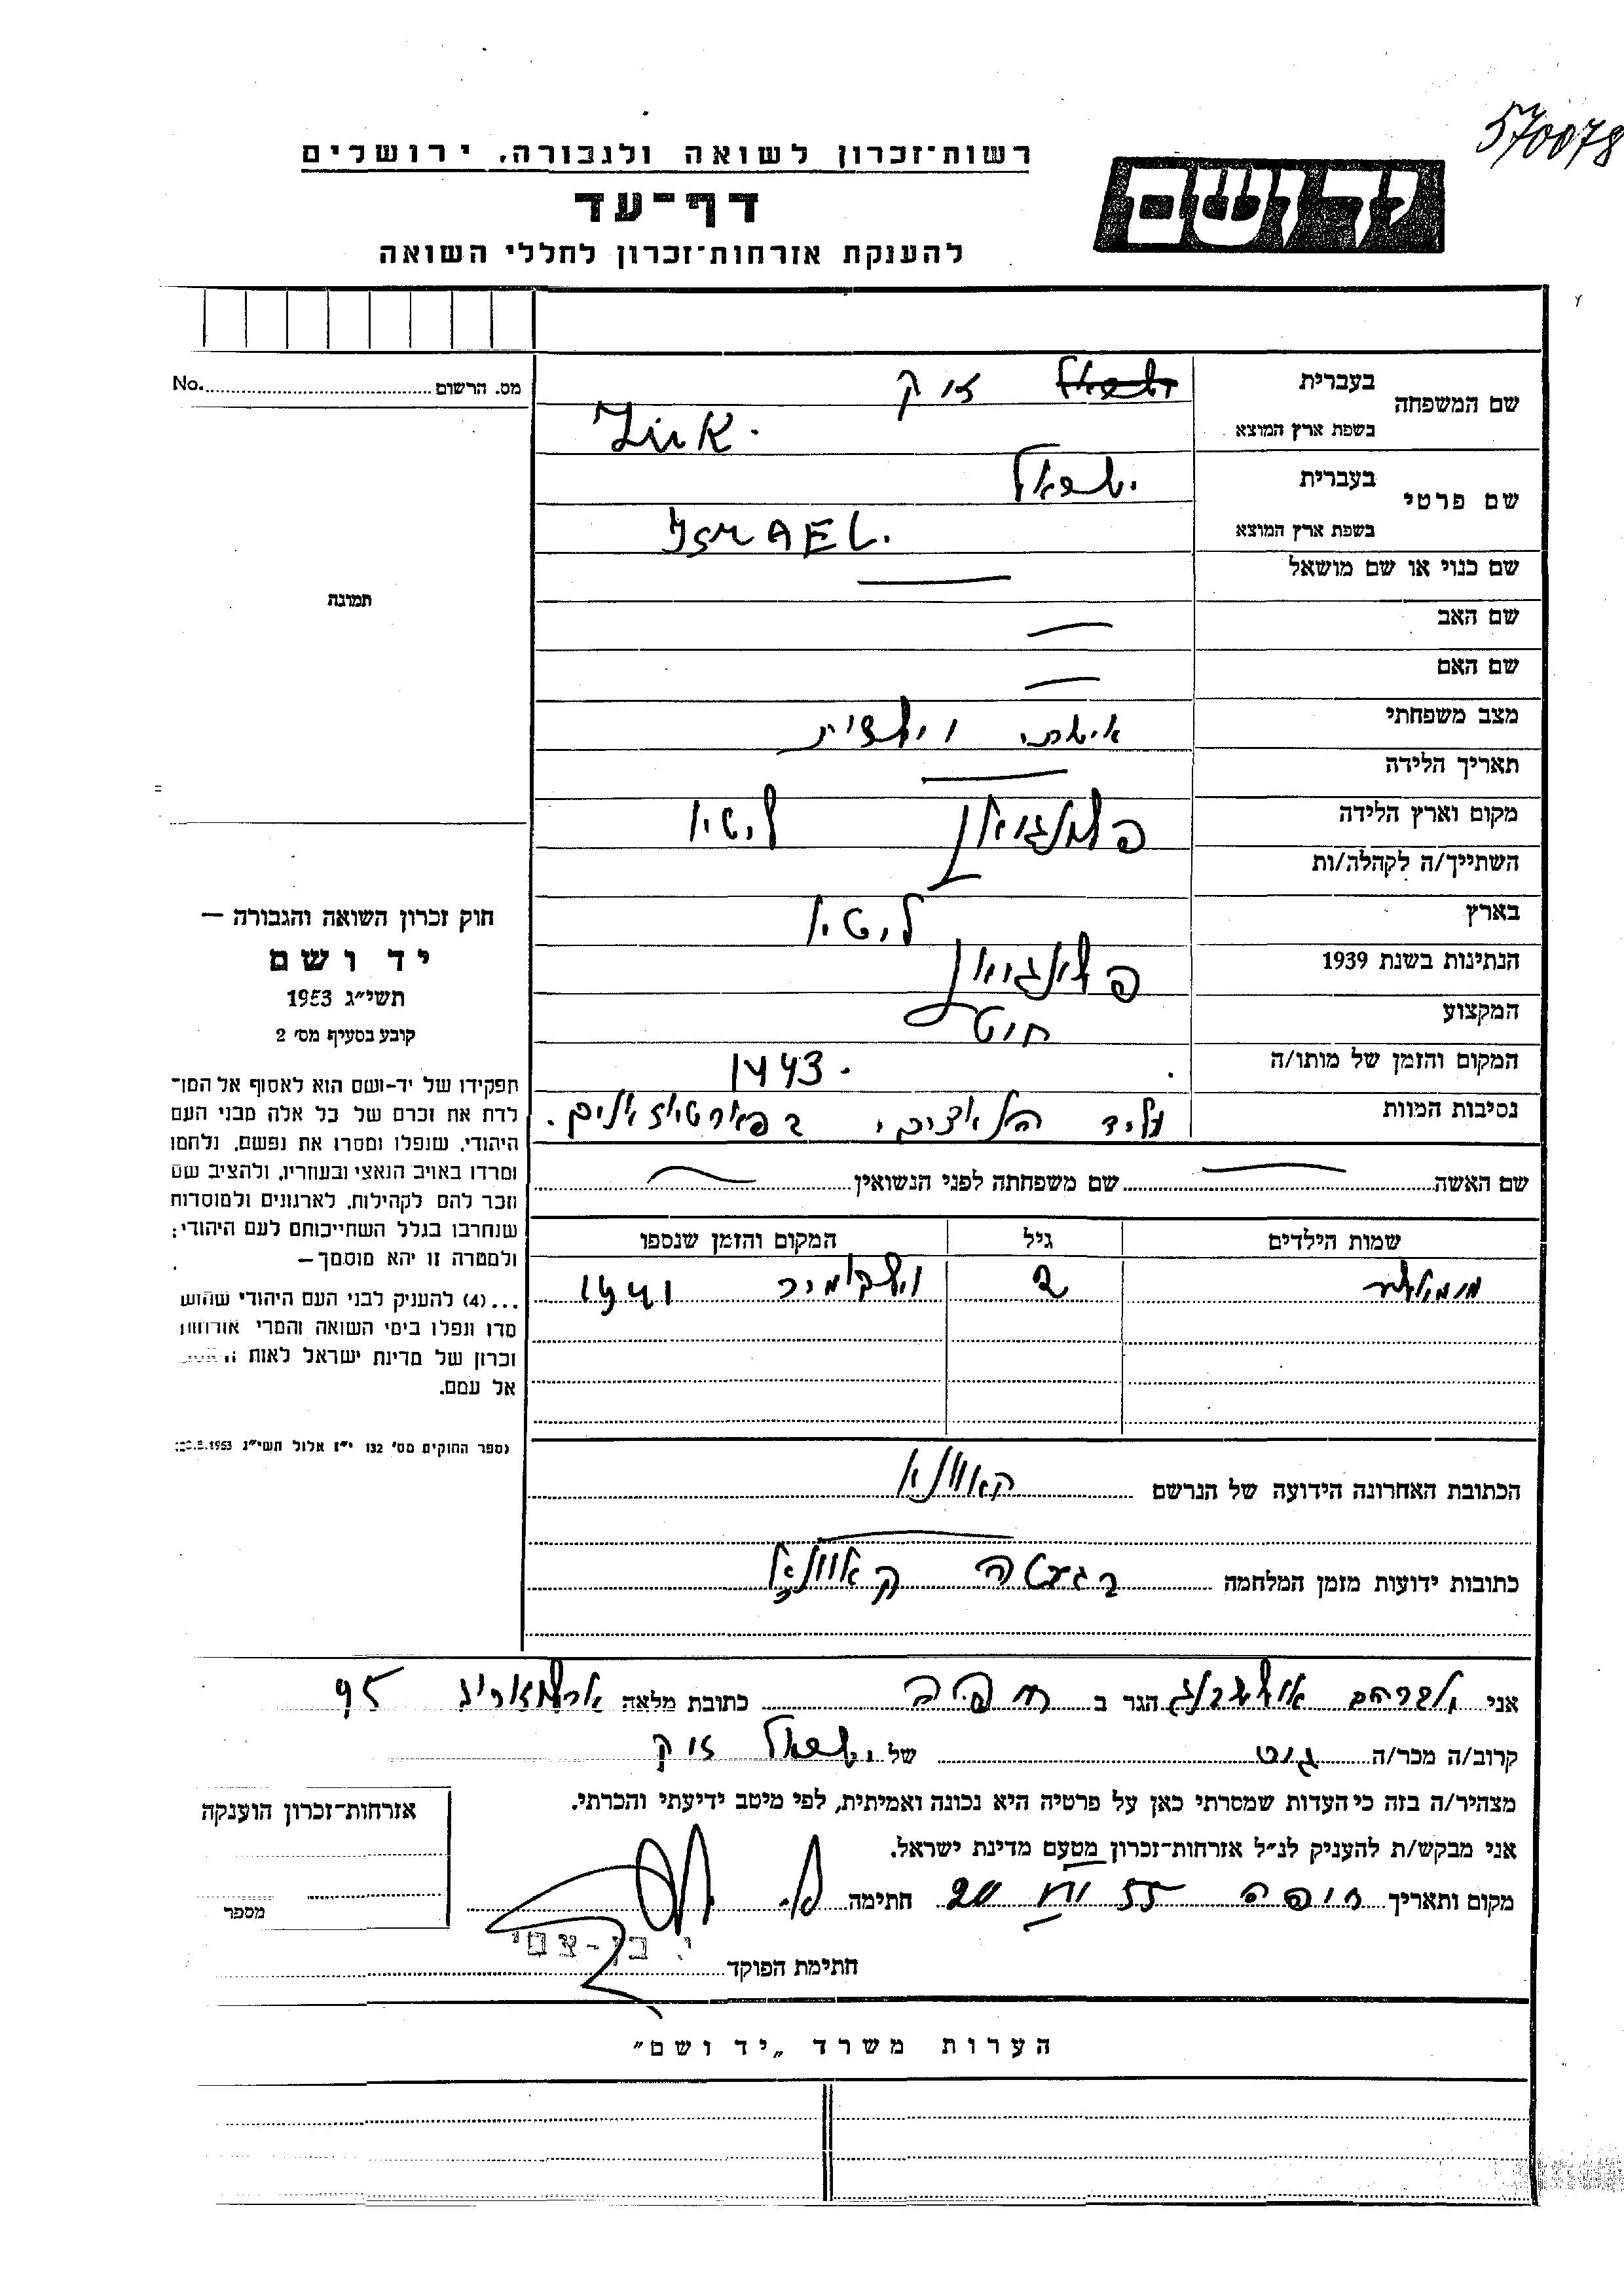 570078
רשות־זכרון לשואה ולגבורה, ירושלים
ידושם
דף־עד
להענקת אזרחות־זכרון לחללי השואה
מס. הרשום No.
שם המשפחה
בעברית ישראל זיק
בשפת ארץ המוצא Zük.
שם פרטי
בעברית ישראל
בשפת ארץ המוצא ISRAEL.
שם כנוי או שם מושאל
תמונה
שם האב
שם האם
מצב משפחתי
תאריך הלידה
מקום וארץ הלידה ליטא
השתייך/ה לקהלה/ות
בארץ ליטא
הנתינות בשנת 1939
המקצוע חיט
המקום והזמן של מותו/ה 1943.
נסיבות המוות על יד הנאצים, בפארטיזאנים.
שם האשה שם משפחתה לפני הנשואין
שמות הילדים גיל המקום והזמן שנספו
2 1941
הכתובת האחרונה הידועה של הנרשם קאוונא
כתובות ידועות מזמן המלחמה בגעטה קאוונא
חוק זכרון השואה והגבורה —
יד ושם
תשי״ג 1953
קובע בסעיף מס׳ 2
תפקידו של יד-ושם הוא לאסוף אל המו־
לדת את זכרם של כל אלה מבני העם
היהודי, שנפלו ומסרו את נפשם, נלחמו
ומרדו באויב הנאצי ובעוזריו, ולהציב שם
וזכר להם לקהילות, לארגונים ולמוסדות
שנחרבו בגלל השתייכותם לעם היהודי;
ולמטרה זו יהא מוסמך—
...(4) להענק לבני העם היהודי שהוש
מדו ונפלו בימי השואה והמרי אזרחות
זכרון של מדינת ישראל לאות
אל עמם.
(ספר החוקים מס׳ 132 י״ז אלול תשי״ג 1953
אני אברהם הגר ב חיפה כתובת מלאה 95
קרוב/ה מכר/ה גיס של ישראל זיק
מצהיר/ה בזה כי העדות שמסרתי כאן על פרטיה היא נכונה ואמיתית, לפי מיטב ידיעתי והכרתי.
אני מבקש/ת להעניק לנ״ל אזרחות־זכרון מטעם מדינת ישראל.
מקום ותאריך חיפה 20 VII 55 חתימה
חתימת הפוקד י. בן-צבי
אזרחות־זכרון הוענקה
מספר
הערות משרד „יד ושם״